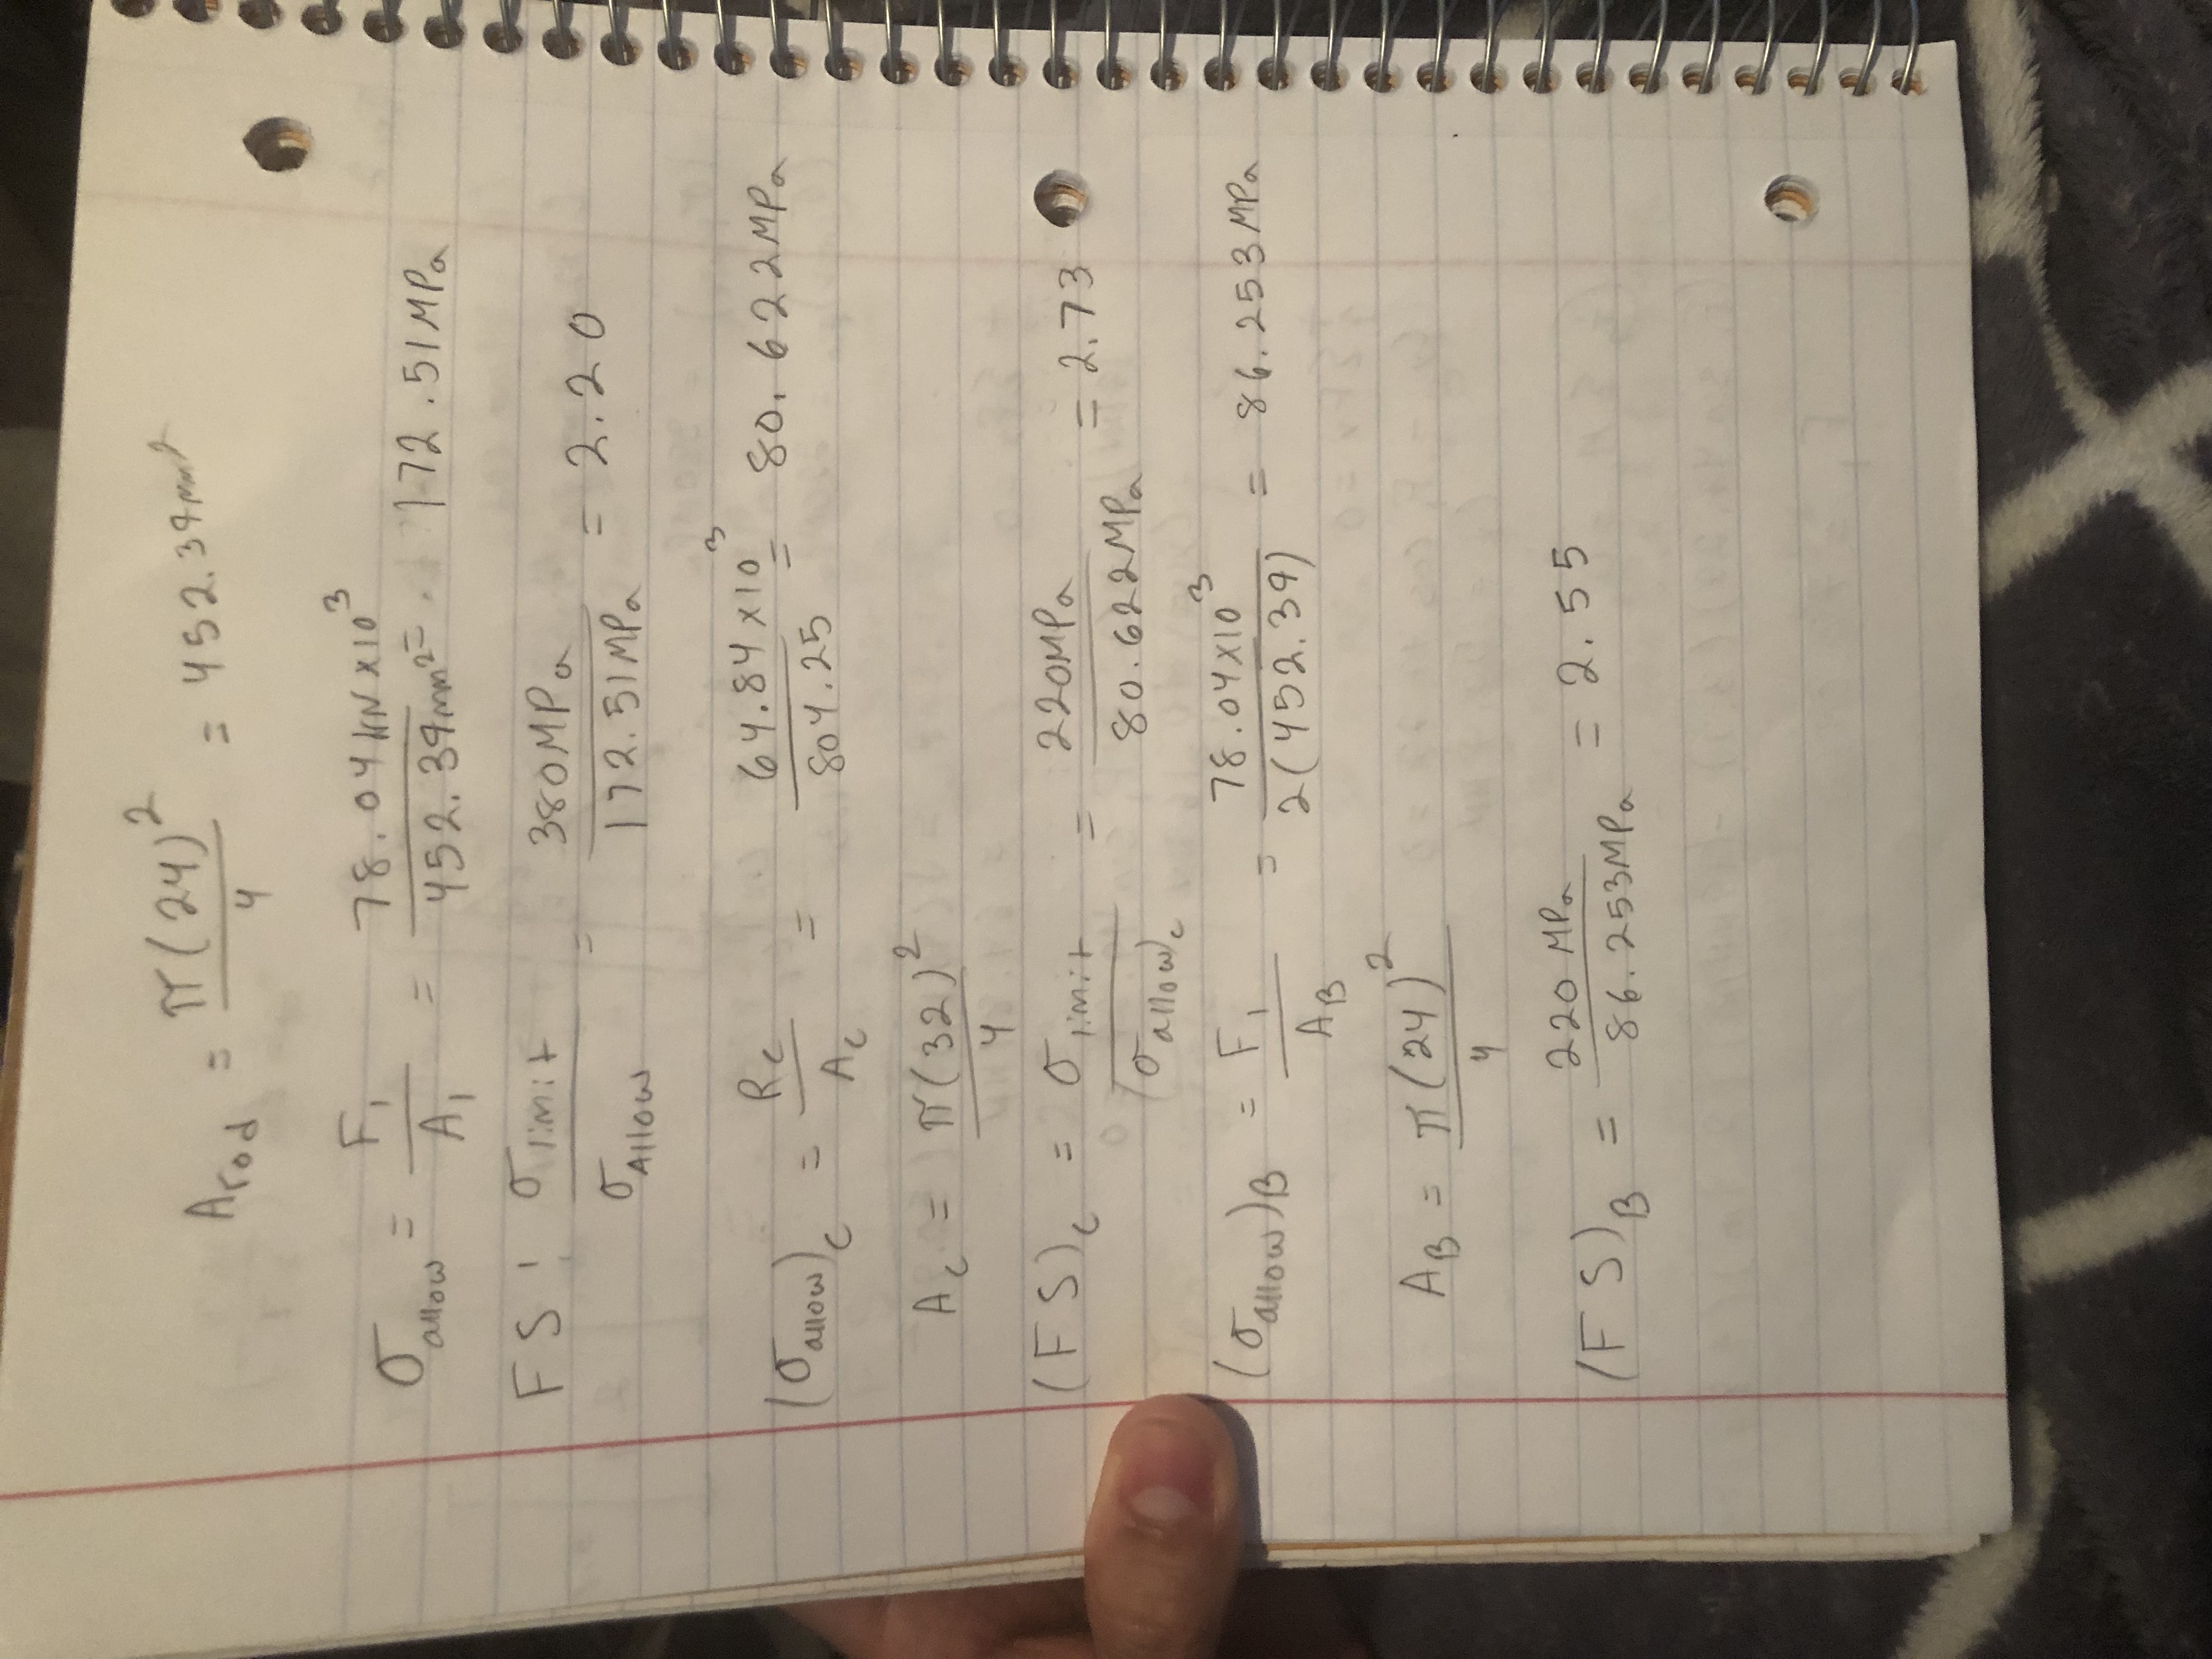 A rod = π(24)² / 4 = 452.39mm²
σ allow = F₁ / A₁ = 78.04 kN ×10³ / 452.39mm² = 172.51MPa
FS: σ limit / σ Allow = 380MPa / 172.51MPa = 2.20
(σ allow)c = Rc / Ac = 64.84×10³ / 804.25 = 80.622MPa
Ac = π(32)² / 4
(FS)c = σ limit / (σ allow)c = 220MPa / 80.622MPa = 2.73
(σ allow)B = F₁ / AB = 78.04×10³ / 2(452.39) = 86.253MPa
AB = π(24)² / 4
(FS)B = 220 MPa / 86.253MPa = 2.55